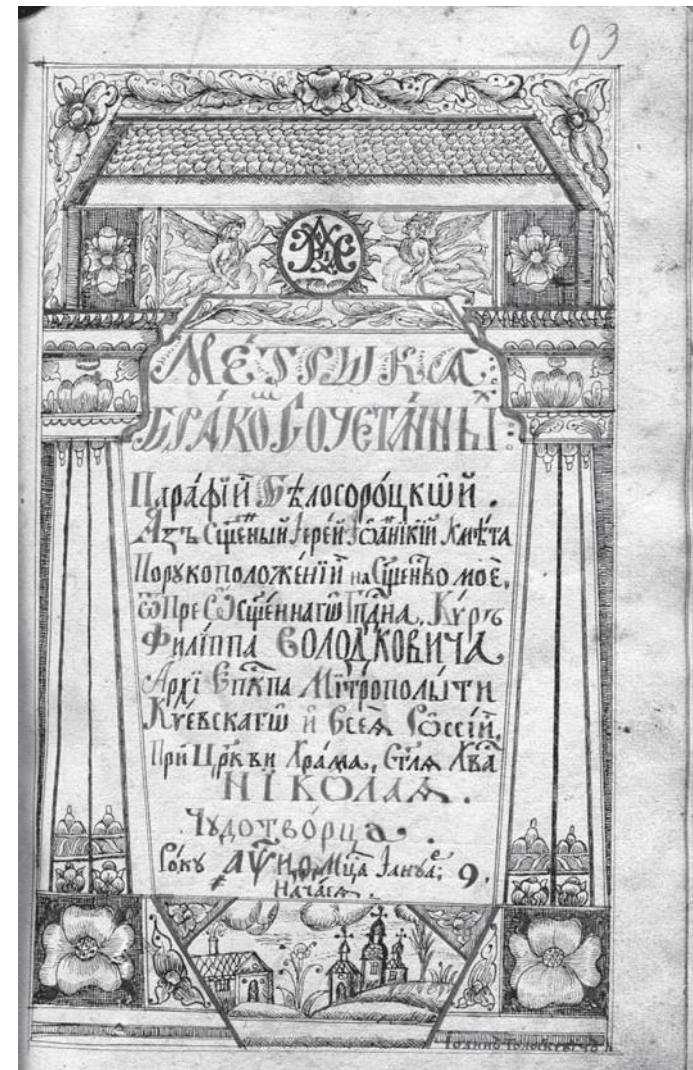 93
МЕТРЫКА
БРАКОѾ СОЧЕТАННЫЙ:
Парафїй Бѣлосороцкѡй.
Азъ Сщ҃енный Іерей Іѡанїкїй Хмѣта
По рукоположенїй на Сщ҃енство мое,
ѿ Преѡсщ҃еннагѡ Гпⷭ҇дна, Кѵръ
Филїппа ВОЛОДКОВИЧА
Архї Епⷭ҇кпа Мїтрополыти
Кїевскагѡ и Всеѧ Рѡссїй,
При Црⷪ҇кви Храма, Ст҃лѧ Хв҃а
НІКОЛАѦ.
Чудотворца.
Року ҂АѰИ, Мцⷭ҇а Іануаⷬ҇: 9.
Начасѧ.